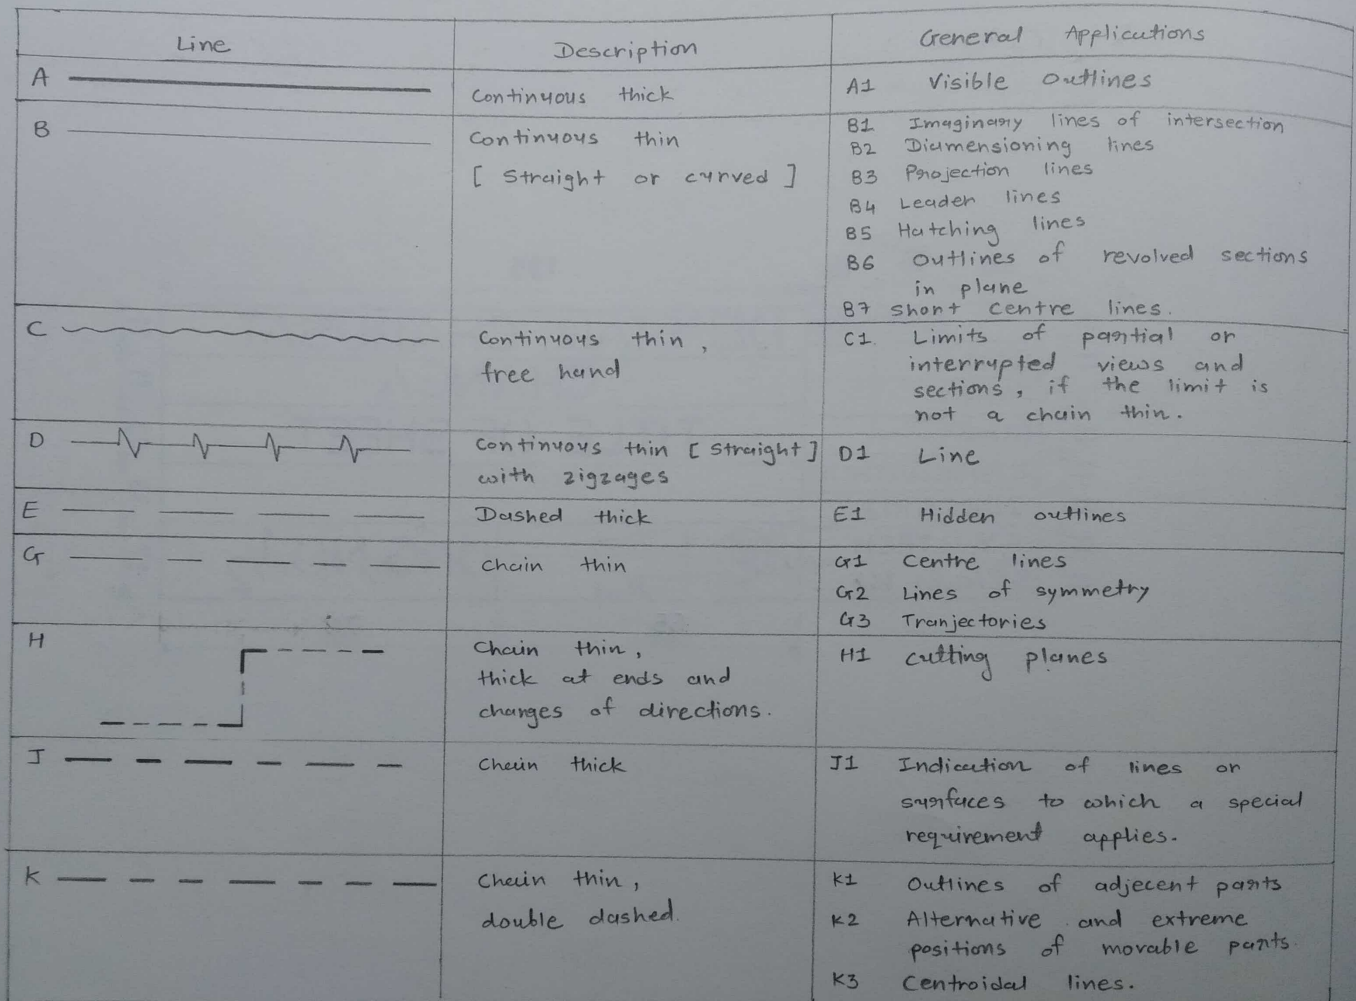 Line Description General Applications
A Continuous thick A1 Visible Outlines
B Continuous thin
[ Straight or curved ]
B1 Imaginary lines of intersection
B2 Diamensioning lines
B3 Projection lines
B4 Leader lines
B5 Hatching lines
B6 Outlines of revolved sections
in plane
B7 Short Centre lines.
C Continuous thin,
free hand
C1. Limits of partial or
interrupted views and
sections, if the limit is
not a chain thin.
D Continuous thin [ Straight ]
with zigzages
D1 Line
E Dashed thick E1 Hidden outlines
G Chain thin
G1 Centre lines
G2 Lines of symmetry
G3 Tranjectories
H Chain thin,
thick at ends and
changes of directions.
H1 Cutting planes
J Chain thick
J1 Indication of lines or
surfaces to which a special
requirement applies.
K Chain thin,
double dashed.
K1 Outlines of adjecent parts
K2 Alternative and extreme
positions of movable parts.
K3 Centroidal lines.